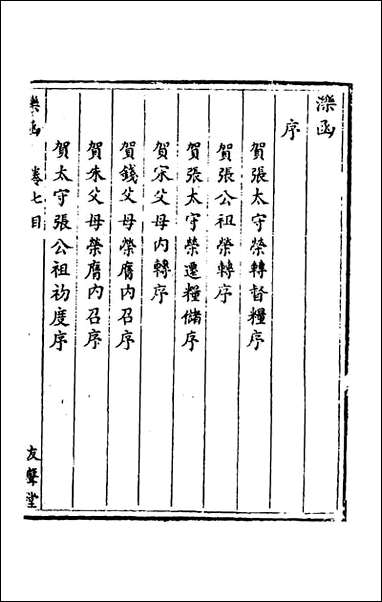 濼函
序
賀張太守榮轉督糧序
賀張公祖榮轉序
賀張太守榮遷糧儲序
賀宋父母內轉序
賀錢父母榮膺內召序
賀朱父母榮膺內召序
賀太守張公祖初度序
濼函 卷七目 友聲堂